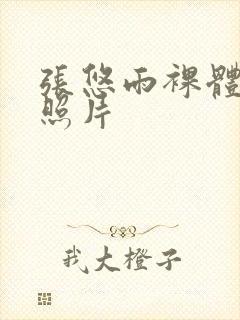 張悠雨裸體
照片
我大橙子